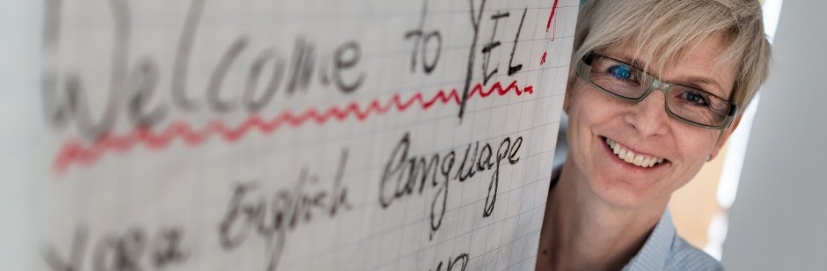 Welcome to YEL!
Yara English Language